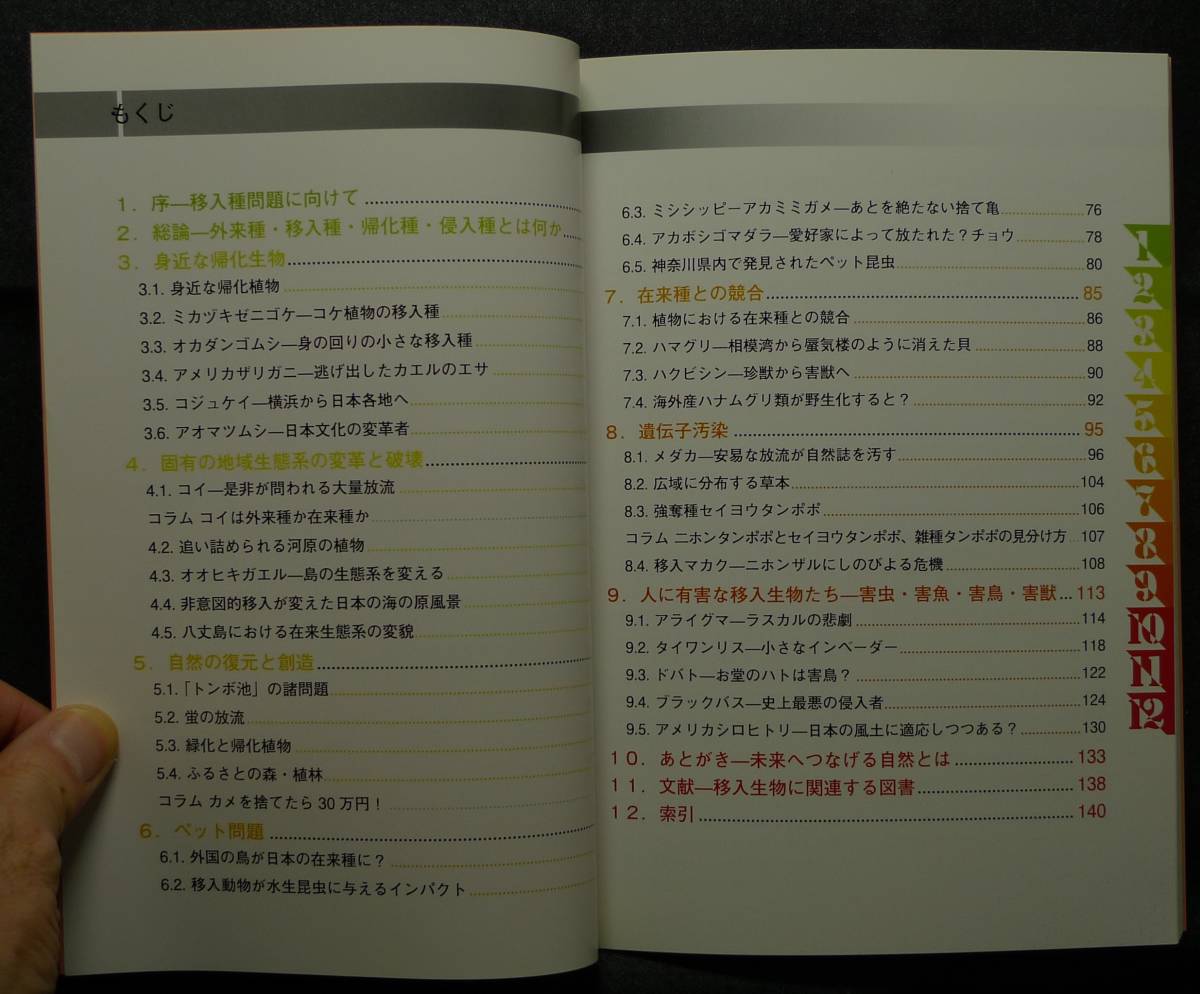 もくじ
1. 序―移入種問題に向けて
2. 総論―外来種・移入種・帰化種・侵入種とは何か
3. 身近な帰化生物
3.1. 身近な帰化植物
3.2. ミカヅキゼニゴケ―コケ植物の移入種
3.3. オカダンゴムシ―身の回りの小さな移入種
3.4. アメリカザリガニ―逃げ出したカエルのエサ
3.5. コジュケイ―横浜から日本各地へ
3.6. アオマツムシ―日本文化の変革者
4. 固有の地域生態系の変革と破壊
4.1. コイ―是非が問われる大量放流
コラム コイは外来種か在来種か
4.2. 追い詰められる河原の植物
4.3. オオヒキガエル―島の生態系を変える
4.4. 非意図的移入が変えた日本の海の原風景
4.5. 八丈島における在来生態系の変貌
5. 自然の復元と創造
5.1.「トンボ池」の諸問題
5.2. 蛍の放流
5.3. 緑化と帰化植物
5.4. ふるさとの森・植林
コラム カメを捨てたら30万円!
6. ペット問題
6.1. 外国の鳥が日本の在来種に?
6.2. 移入動物が水生昆虫に与えるインパクト
6.3. ミシシッピーアカミミガメ―あとを絶たない捨て亀 76
6.4. アカボシゴマダラ―愛好家によって放たれた?チョウ 78
6.5. 神奈川県内で発見されたペット昆虫 80
7. 在来種との競合 85
7.1. 植物における在来種との競合 86
7.2. ハマグリ―相模湾から蜃気楼のように消えた貝 88
7.3. ハクビシン―珍獣から害獣へ 90
7.4. 海外産ハナムグリ類が野生化すると? 92
8. 遺伝子汚染 95
8.1. メダカ―安易な放流が自然誌を汚す 96
8.2. 広域に分布する草本 104
8.3. 強奪種セイヨウタンポポ 106
コラム ニホンタンポポとセイヨウタンポポ、雑種タンポポの見分け方 107
8.4. 移入マカク―ニホンザルにしのびよる危機 108
9. 人に有害な移入生物たち―害虫・害魚・害鳥・害獣 113
9.1. アライグマ―ラスカルの悲劇 114
9.2. タイワンリス―小さなインベーダー 118
9.3. ドバト―お堂のハトは害鳥? 122
9.4. ブラックバス―史上最悪の侵入者 124
9.5. アメリカシロヒトリ―日本の風土に適応しつつある? 130
10. あとがき―未来へつなげる自然とは 133
11. 文献―移入生物に関連する図書 138
12. 索引 140
1
2
3
4
5
6
7
8
9
10
11
12